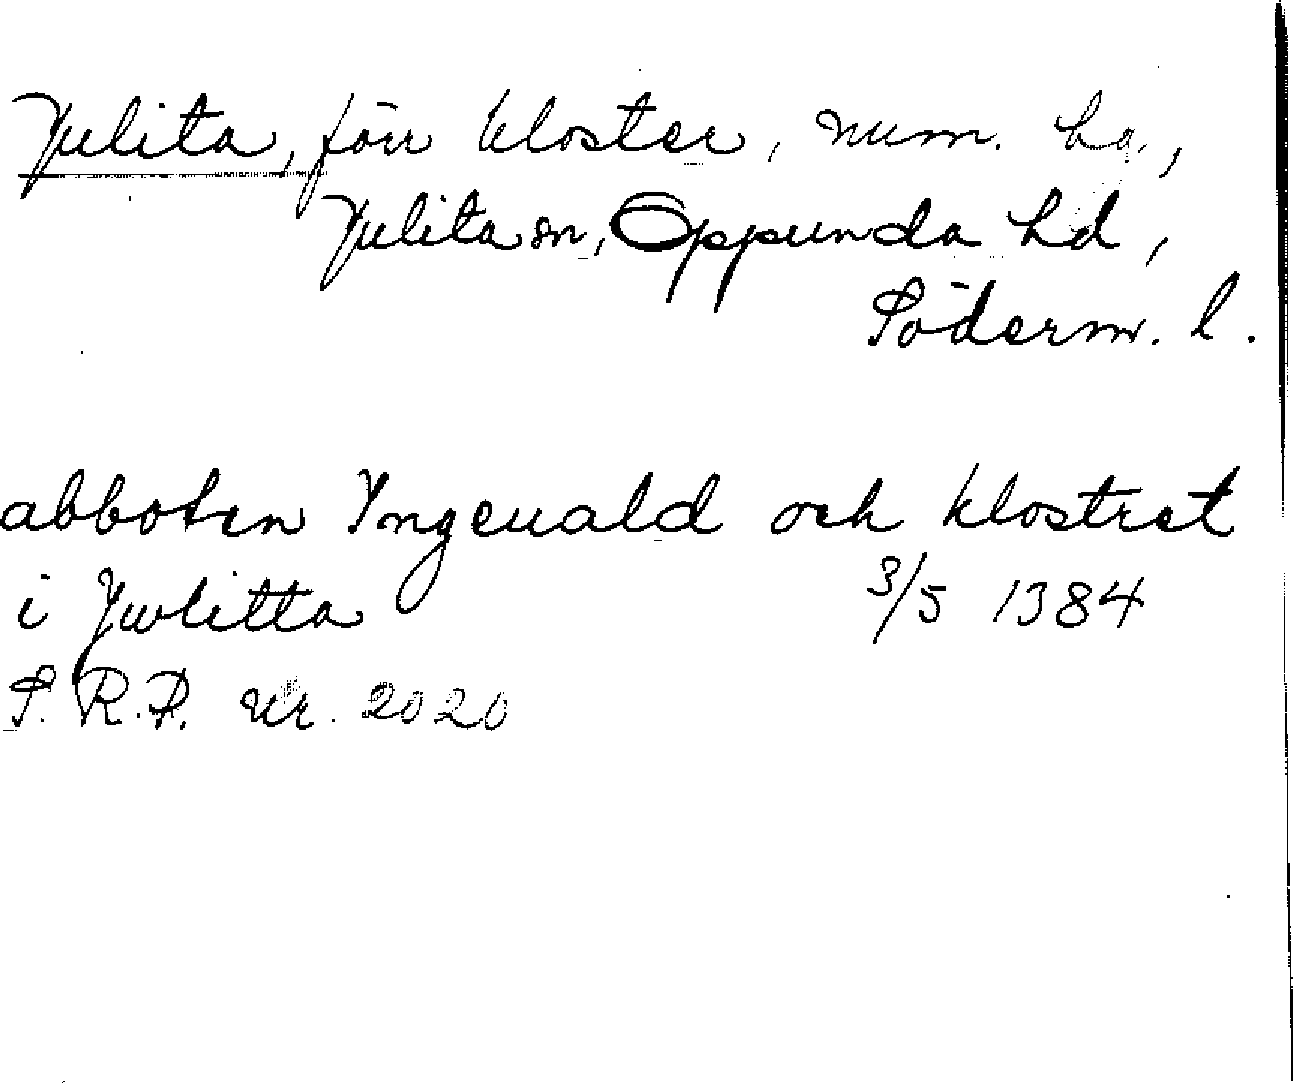 Julita, förr kloster, num. hg.,
Julita sn, Oppunda hd,
Söderm. l.
abboten Yngeuald och klostret
i Jwlitta 3/5 1384
S. R. P. nr. 2020